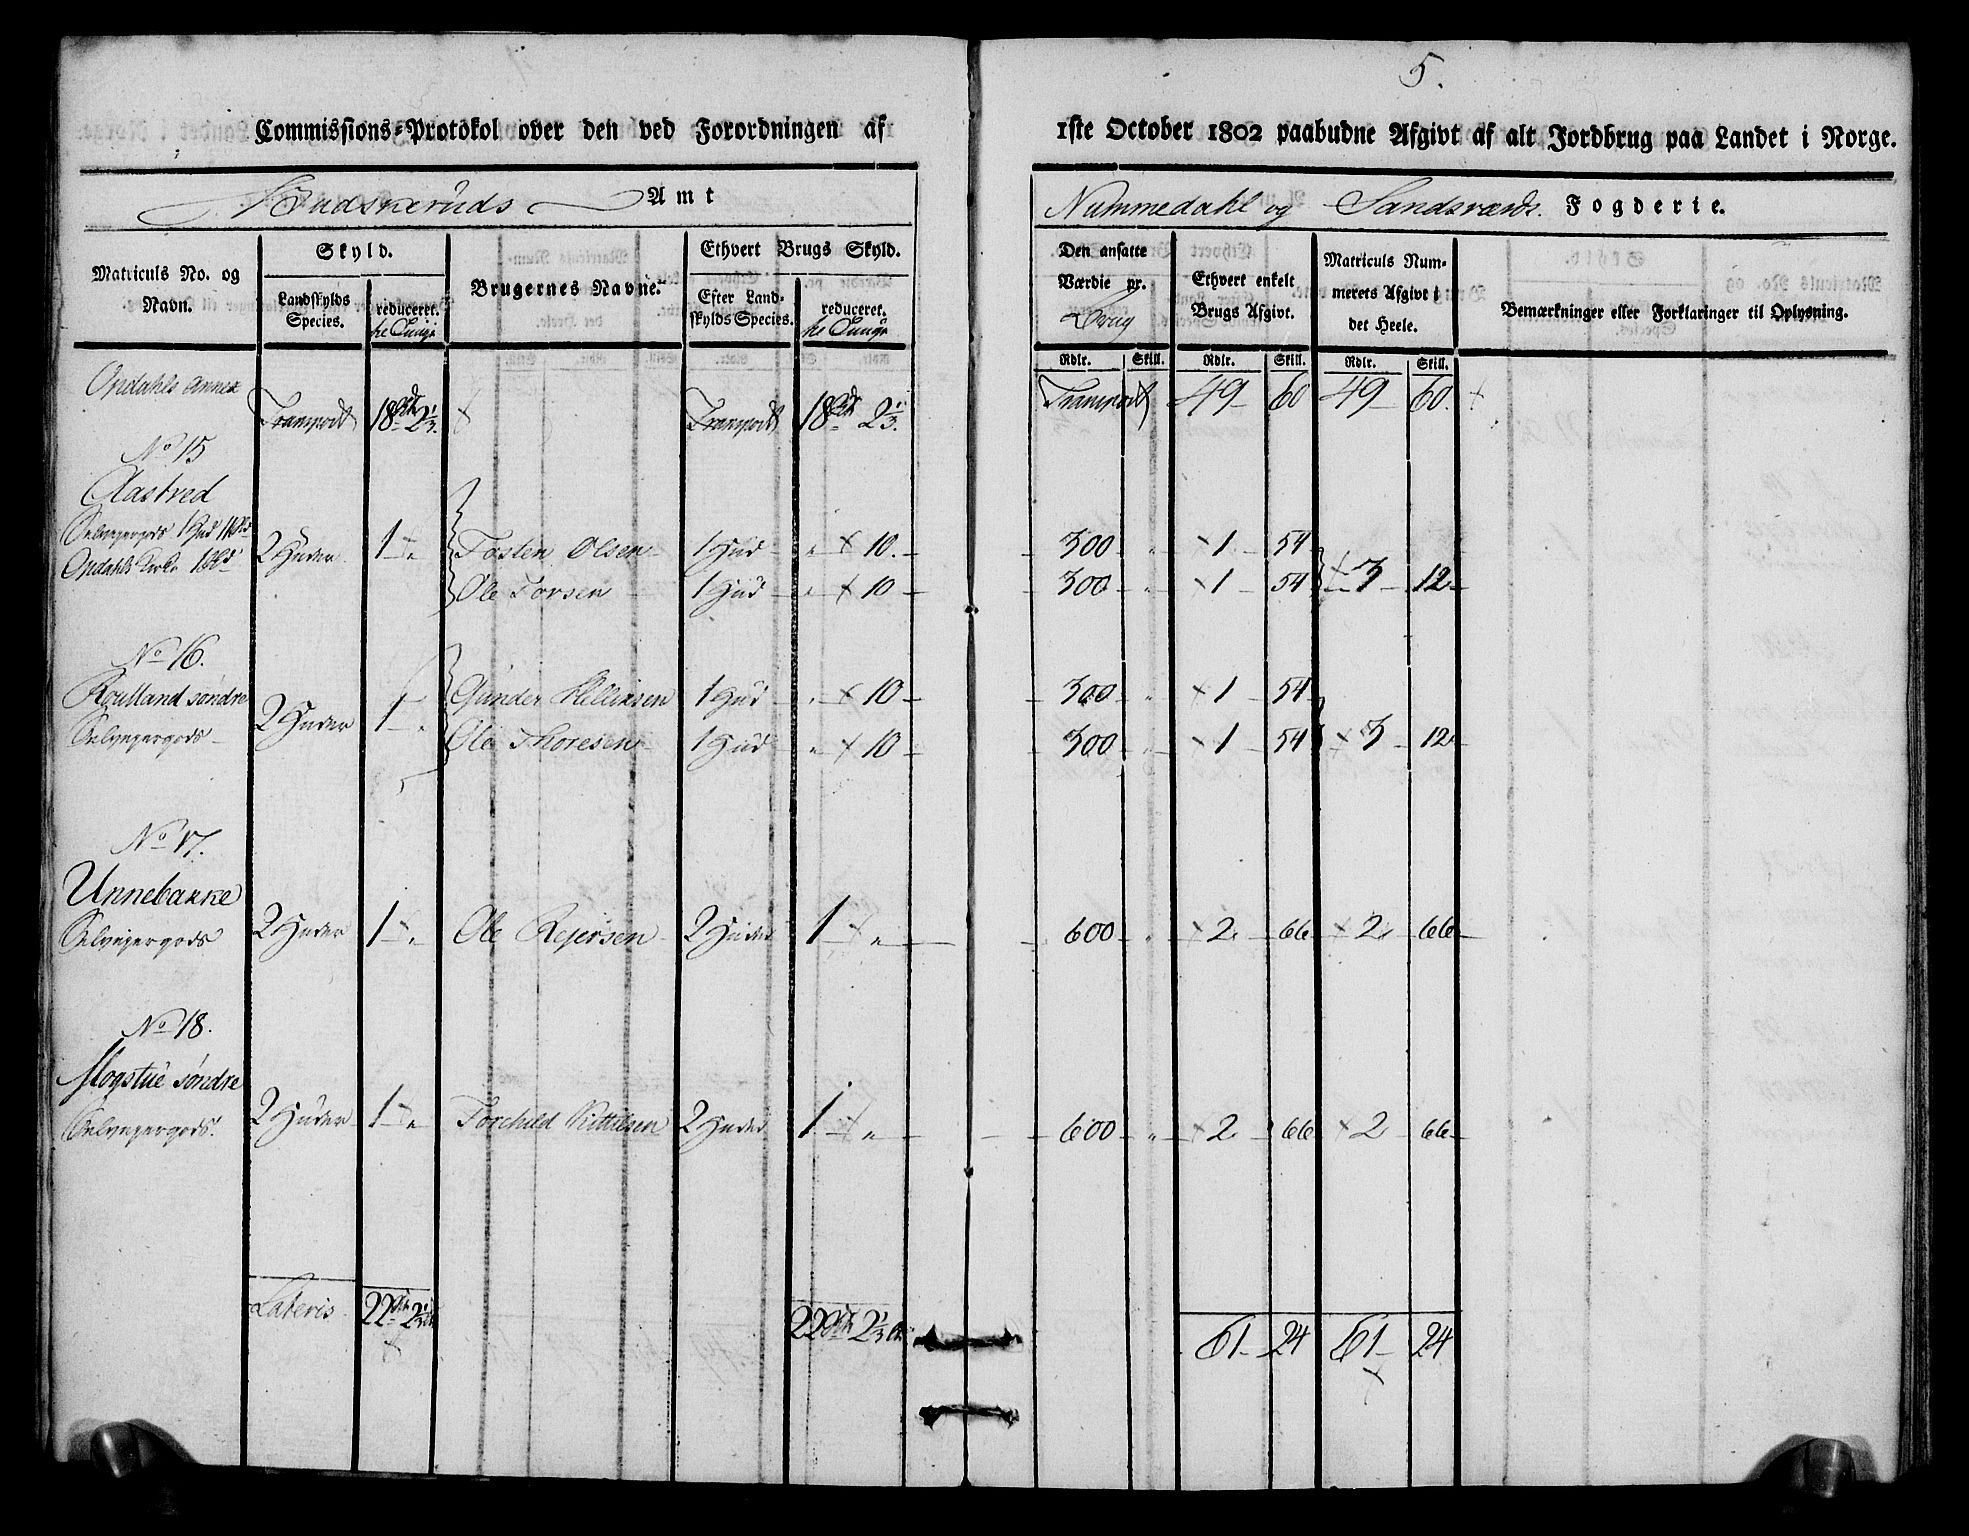 5.
Commissions-Protokol over den ved Forordningen af 1ste October 1802 paabudne Afgivt af alt Jordbrug paa Landet i Norge.
Budskeruds Amt
Nummedahl og Sandsværds Fogderie.
Matriculs No. og Navn.
Skyld.
Landskylds Species.
reduceret.
Brugernes Navne.
Ethvert Brugs Skyld.
Efter Landskylds Species.
reduceret.
Den ansatte Værdie pr. Brug
Ethvert enkelt Brugs Afgivt.
Matriculs Nummerets Afgivt i det Heele.
Bemærkninger eller Forklaringer til Oplysning.
Rdlr. Skill. Rdlr. Skill. Rdlr. Skill.
Opdahls Annex
Transport 18 2 1/3. Transport 18 2 1/3. Transport 49 60 49 60.
No 15
Aastved
Selveyergods 1 Hud
Opdahls Kirke
2 Huder 1 "
Tosten Olsen 1 Hud " 10. 300 " 1 54
Ole Torsen 1 Hud " 10 300 " 1 54 3 12
No 16.
Roulland søndre
Selveyergods
2 Huder 1 "
Gunder Hellixsen 1 Hud " 10 300 " 1 54
Ole Thoresen 1 Hud " 10 300 " 1 54 3 12
No 17.
Unnebakke
Selveyergods
2 Huder 1 " Ole Rejersen 2 Huder 1 " 600 " 2 66 2 66
No 18.
Mogstue søndre
Selveyergods.
2 Huder 1 " Torchild Kittilsen 2 Huder 1 " 600 " 2 66 2 66
Lateris 22 2 1/3 22 2 1/3 61 24 61 24